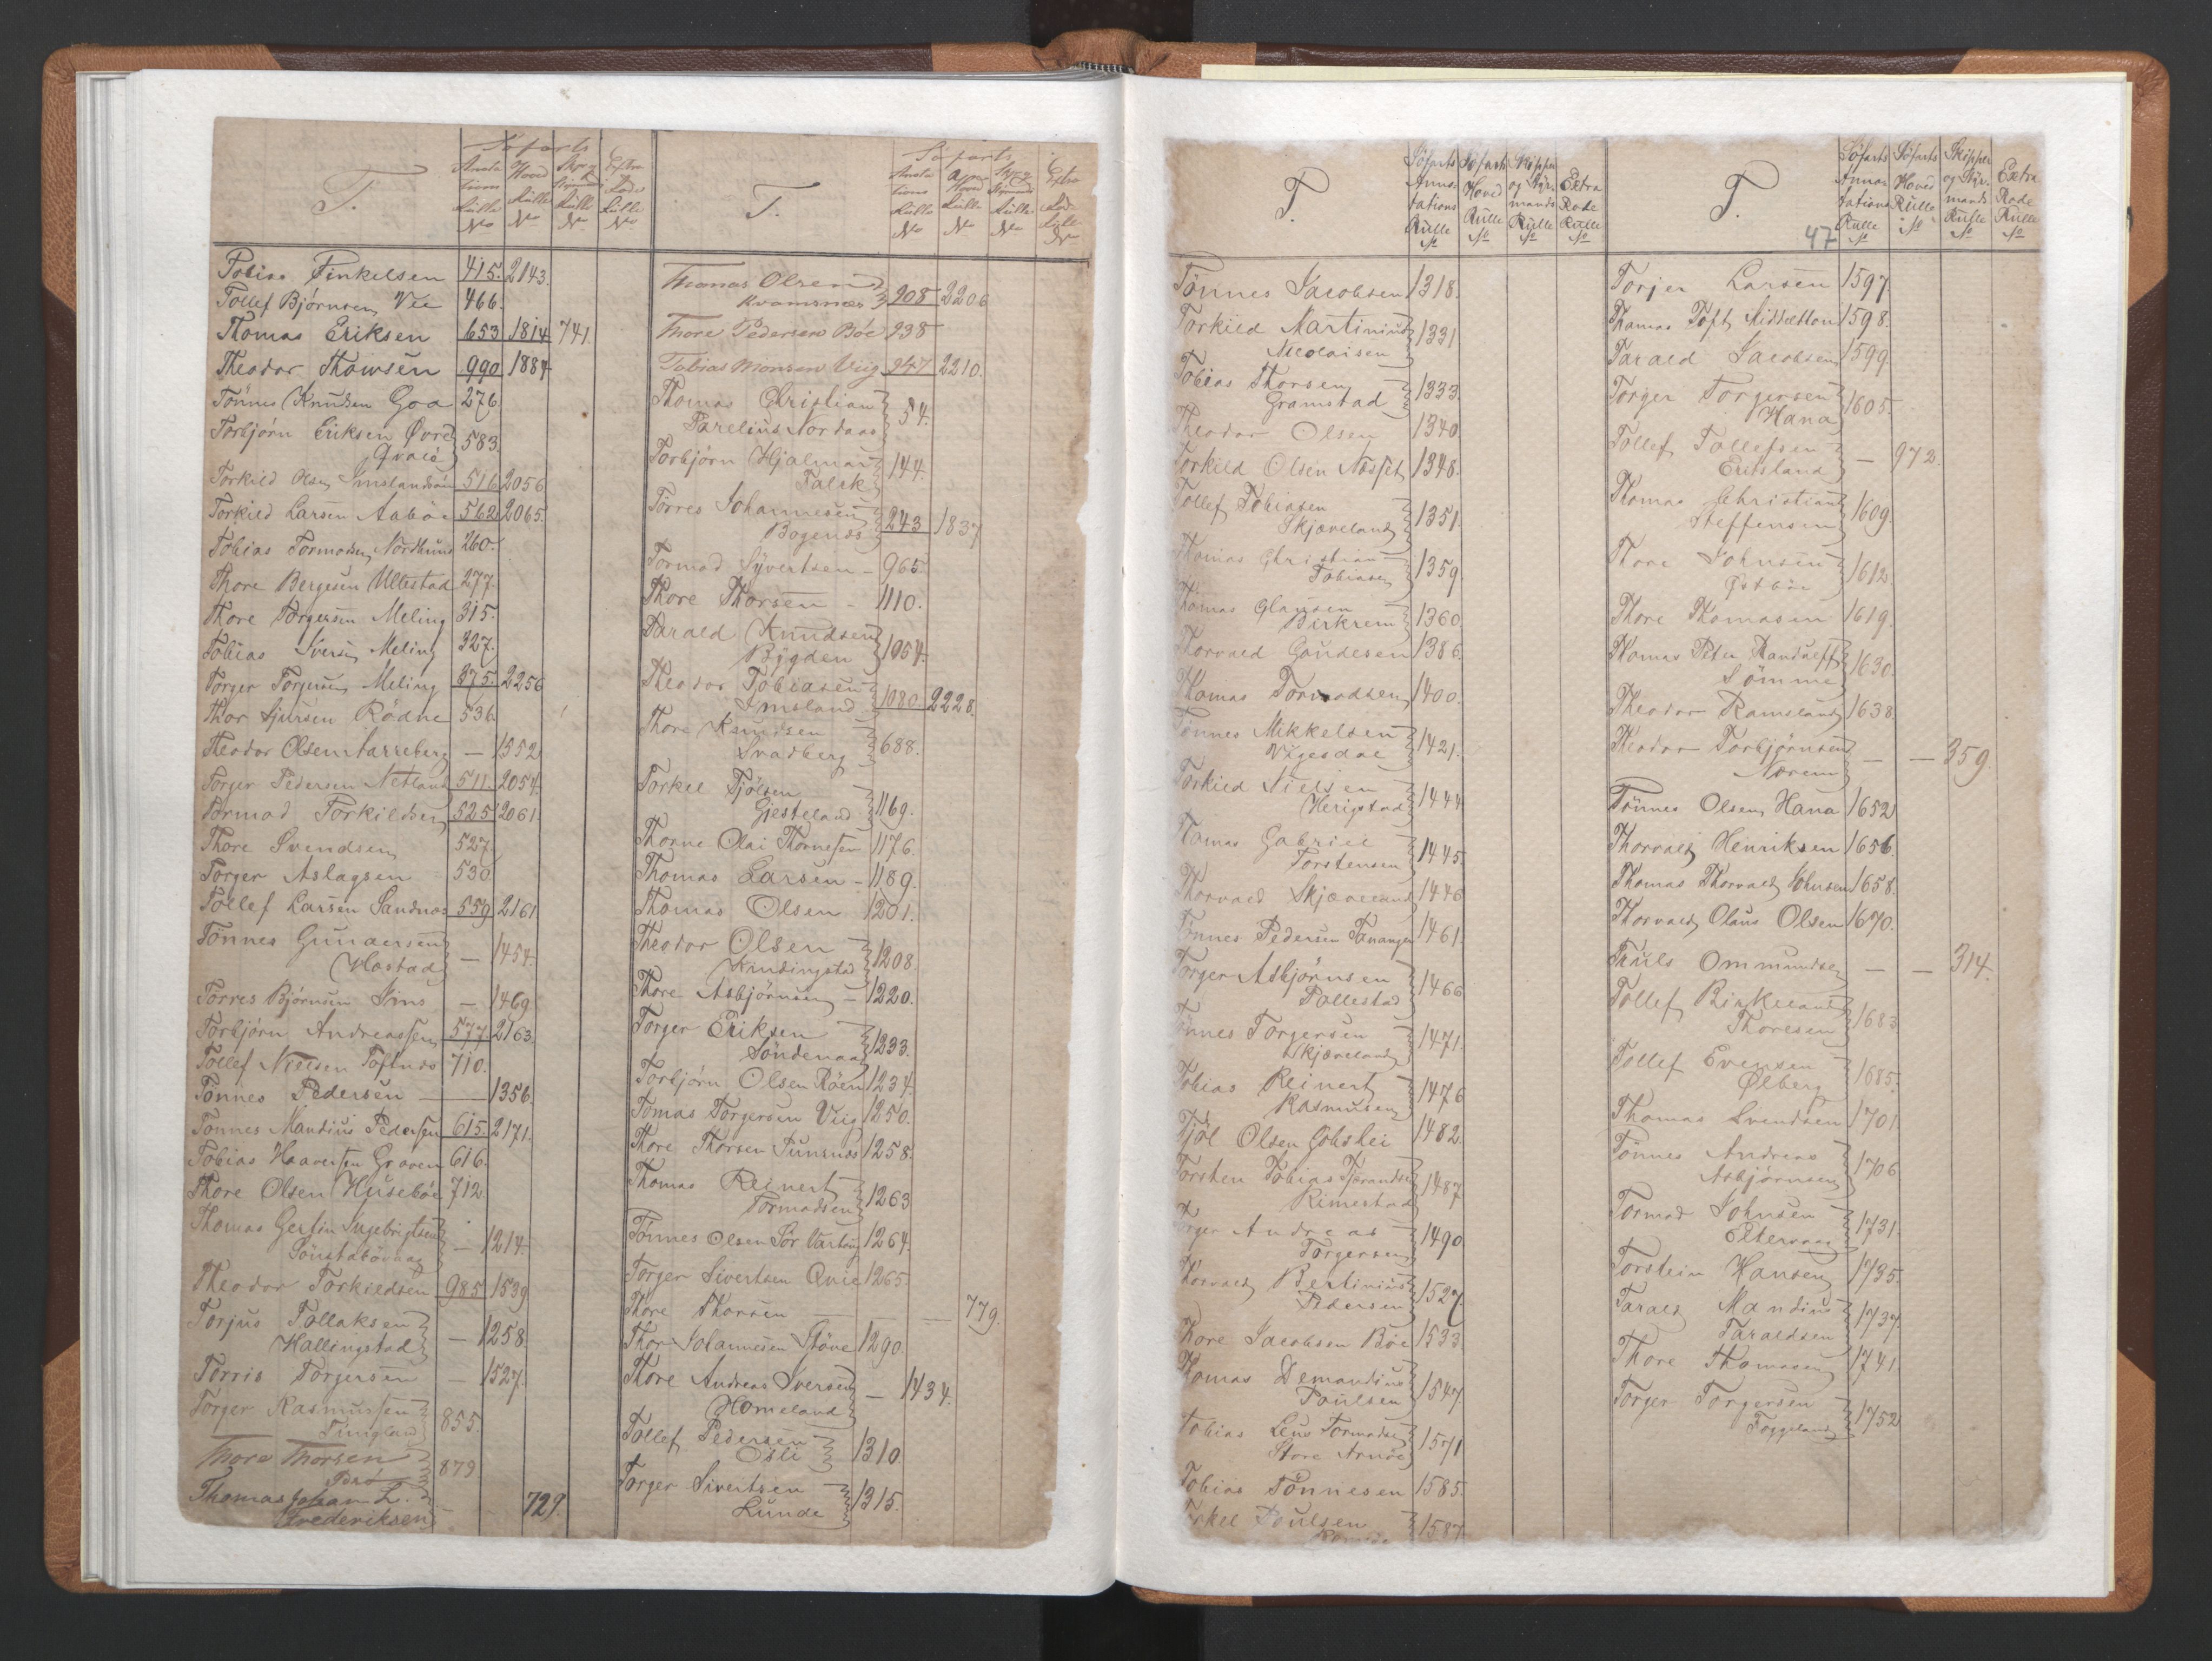 T.
Søfarts
Anota
tions
Rulle
No
Hoved
Rulle
No
Rulle
No
Extra
Rode
Rulle
No
Tobias Finkelsen 415. 2143.
Tollef Bjørnsen Vee 466.
Thomas Eriksen 653 1814 741.
Theodor Thomsen 990 1887
Tönnes Knudsen Goa 276.
Torbjørn Eriksen Øvre
Qvale 583.
Torkild Olsen Imslandsøen 516 2056
Torkild Larsen Aabøe 562 2065.
Tobias Tormodsen Nordhuus 260.
Thore Bergesen Ullestad 277.
Thore Torgersen Meling 315.
Tobias Iversen Meling 327.
Torger Torgersen Meling 375. 2256
Thor Sjursen Rödne 536.
Theodor Olsen Narreberg — 1552
Torger Pedersen Netland 511. 2054.
Tormod Torkildsen 525 2061.
Thore Svendsen 527.
Torger Aslagsen 530
Tollef Larsen Sandnæs 559 2161
Tönnes Gunnersen
Hostad — 1454.
Torres Bjørnsen Lins — 1469
Torbjörn Andreassen 577 2163.
Tollef Nielsen Toftnæs 710.
Tönnes Pedersen — 1356.
Tönnes Mandius Pedersen 615. 2171.
Tobias Haaversen Graven 616.
Thore Olsen Husebøe 712.
Thomas Gertin Ingebrigtsen
— 1214.
Theodor Torkildsen 985 1539
Torjus Tollaksen
Hallingstad — 1258.
Torris Torgersen — 1527.
Torger Rasmussen
Tungland 855.
Thore Thorsen
879.
Thomas Johan L.
Frederiksen — - 729.
T.
Søfarts
Anota
tions
Rulle
No
Hoved
Rulle
No
Rulle
No
Extra
Rode
Rulle
No
Thomas Olsen
Kvamsnæs 908 2206
Thore Pedersen Böe 938
Tobias Monsen Viig 947 2210.
Thomas Christian
Parelius Nordaas 54.
Torbjörn Hjalmar
Falck 144.
Torres Johannesen
Bogenæs 243 1837
Tormod Syvertsen - 965.
Thore Thorsen - 1110.
Tarald Knudsen
Bygden 1054.
Theodor Tobiasen
Imsland 1080. 2228.
Thore Knudsen
Svadberg 688.
Torkel Tjölsen
Gjesteland 1169.
Thorne Olai Thornesen 1176.
Thomas Larsen - 1189.
Thomas Olsen 1201.
Theodor Olsen
Kindingstad 1208.
Thore Asbjörnsen - 1220.
Torger Eriksen
Söndenaa 1233.
Torbjörn Olsen Röen 1234.
Tomas Torgersen Viig 1250.
Thore Thorsen Sunsnæs 1258.
Thomas Reinert
Tormodsen 1263
Tönnes Olsen Sör Varhoug 1264.
Torger Sivertsen Qvie 1265.
Thore Thorsen — — 779.
Thor Johannesen Stöve 1290.
Thore Andreas Iversen
Homeland — 1434.
Tollef Pedersen
Osli 1310.
Torger Sivertsen
Lunde 1315.
T.
Söfarts
Anno-
tations
Rulle
No
Söfarts
Hoved
Rulle
No
Skipper
og Styr
mands
Rulle
No
Extra
Rode
Rulle
No
Tönnes Jacobsen 1318.
Torkild Martinius
Nicolaisen 1331
Tobias Thorsen
Gramstad 1333.
Theodor Olsen 1340.
Torkild Olsen Næsset 1348.
Tollef Tobiasen
Skjæveland 1351.
Thomas Christian
Tobiasen 1359.
Thomas Clausen
Birkrem 1360.
Thorvald Gaudesen 1386.
Thomas Tormodsen 1400.
Tönnes Mikkelsen
Vigesdal 1421.
Torkild Nielsen
Herigstad 1444.
Thomas Gabriel
Torstensen 1445.
Thorvald Skjæveland 1446
Tönnes Pedersen Tananger 1461.
Torger Asbjörnsen
Tollestad 1466
Tönnes Torgersen
Skjæveland 1471.
Tobias Reinert
Rasmusen 1476
Tjöl Olsen 1482.
Torsten Tobias Tjerandsen
Rimestad 1487
Torger Andreas
Torgersen 1490
Thorvald Bertinius
Pedersen 1527.
Thore Jacobsen Böe 1533
Thomas Demandius
Poulsen 1547.
Tobias Leus Tormodsen
Store Arnöe 1571
Tobias Tönnesen 1585.
Torkel Poulsen
1587
T.
47
Söfarts
Anno-
tations
Rulle
No
Söfarts
Hoved
Rulle
No
Skipper
og Styr-
mands
Rulle
No
Extra
Rode
Rulle
No
Torjer Larsen 1597
Thomas Toft Midbætten 1598.
Tarald Jacobsen 1599
Torger Torgersen
Hana 1605.
Tollef Tollefsen
Eritsland — 972.
Thomas Christian
Steffensen 1609.
Thore Johnsen
Østböe 1612
Thore Thomasen 1619.
Thomas Peter Randulff
Sömme 1630.
Theodor Ramsland 1638.
Theodor Torbjørnsen
Norem — — 359.
Tönnes Olsen Hana 1652
Thorvald Henriksen 1656.
Thomas Thorvald Johnsen 1658.
Thorvald Olaus Olsen 1670.
Truls Ommundsen — — 314.
Tollef Birkeland
Thoresen 1683
Tollef Evensen
Ølberg 1685.
Thomas Svendsen 1701
Tönnes Andreas
Asbjørnsen 1706
Tormod Johnsen
Eltervaag 1731.
Torstein Hansen 1735.
Tarald Mandius
Taraldsen 1737.
Thore Thomasen 1741.
Torger Torgersen
Foggeland 1752